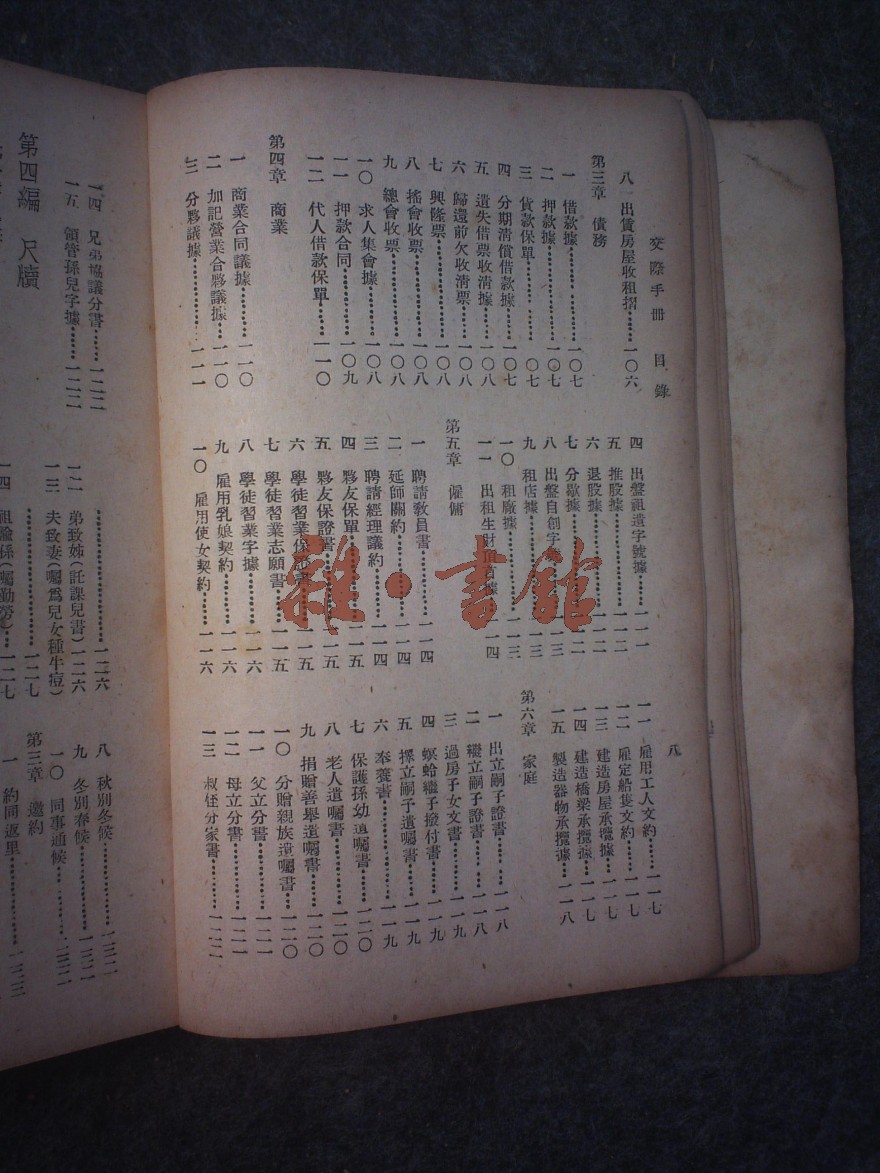 交際手冊 目錄
八
八 出賃房屋收租摺……一〇六
第三章 債務
一 借款據……一〇七
二 押款據……一〇七
三 貨款保單……一〇七
四 分期清償借款據……一〇七
五 遺失借票收清據……一〇八
六 歸還前欠收清票……一〇八
七 興隆票……一〇八
八 搖會收票……一〇八
九 總會收票……一〇八
一〇 求人集會據……一〇八
一一 押款合同……一〇九
一二 代人借款保單……一一〇
第四章 商業
一 商業合同議據……一一〇
二 加記營業合夥議據……一一〇
三 分夥議據……一一一
四 出盤祖遺字號據……一一一
五 推股據……一一一
六 退股據……一一二
七 分歇據……一一二
八 出盤自創字……一一三
九 租店據……一一三
一〇 租廠據……一一三
一一 出租生財頂首據……一一四
第五章 僱傭
一 聘請教員書……一一四
二 延師關約……一一四
三 聘請經理議約……一一四
四 夥友保單……一一五
五 夥友保證書……一一五
六 學徒習業保證書……一一五
七 學徒習業志願書……一一五
八 學徒習業字據……一一六
九 雇用乳娘契約……一一六
一〇 雇用使女契約……一一六
一一 雇用工人文約……一一七
一二 雇定船隻文約……一一七
一三 建造房屋承攬據……一一七
一四 建造橋梁承攬據……一一七
一五 製造器物承攬據……一一八
第六章 家庭
一 出立嗣子證書……一一八
二 繼立嗣子證書……一一八
三 過房子女文書……一一九
四 螟蛤繼子撥付書……一一九
五 擇立嗣子遺囑書……一一九
六 奉養書……一一九
七 保護孫幼遺囑書……一二〇
八 老人遺囑書……一二〇
九 捐贈善舉遺囑書……一二〇
一〇 分贈親族遺囑書……一二〇
一一 父立分書……一二一
一二 母立分書……一二一
一三 叔侄分家書……一二二
一四 兄弟協議分書……一二二
一五 領管孫兒字據……一二二
第四編 尺牘
……一二六
一二 弟致姊(託課兒書)一二六
一三 夫致妻(囑爲兒女種牛痘)
……一二七
一四 祖諭孫(囑勤勞)…一二七
八 秋別冬候……一三二
九 冬別春候……一三二
一〇 同事通候……一三三
第三章 邀約
一 約同返里……一三三
雜·書館